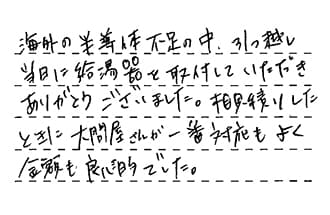 海外の半導体不足の中、引っ越し
当日に給湯器を取付していただき
ありがとうございました。相見積りした
ときに大問屋さんが一番対応もよく
金額も良心的でした。